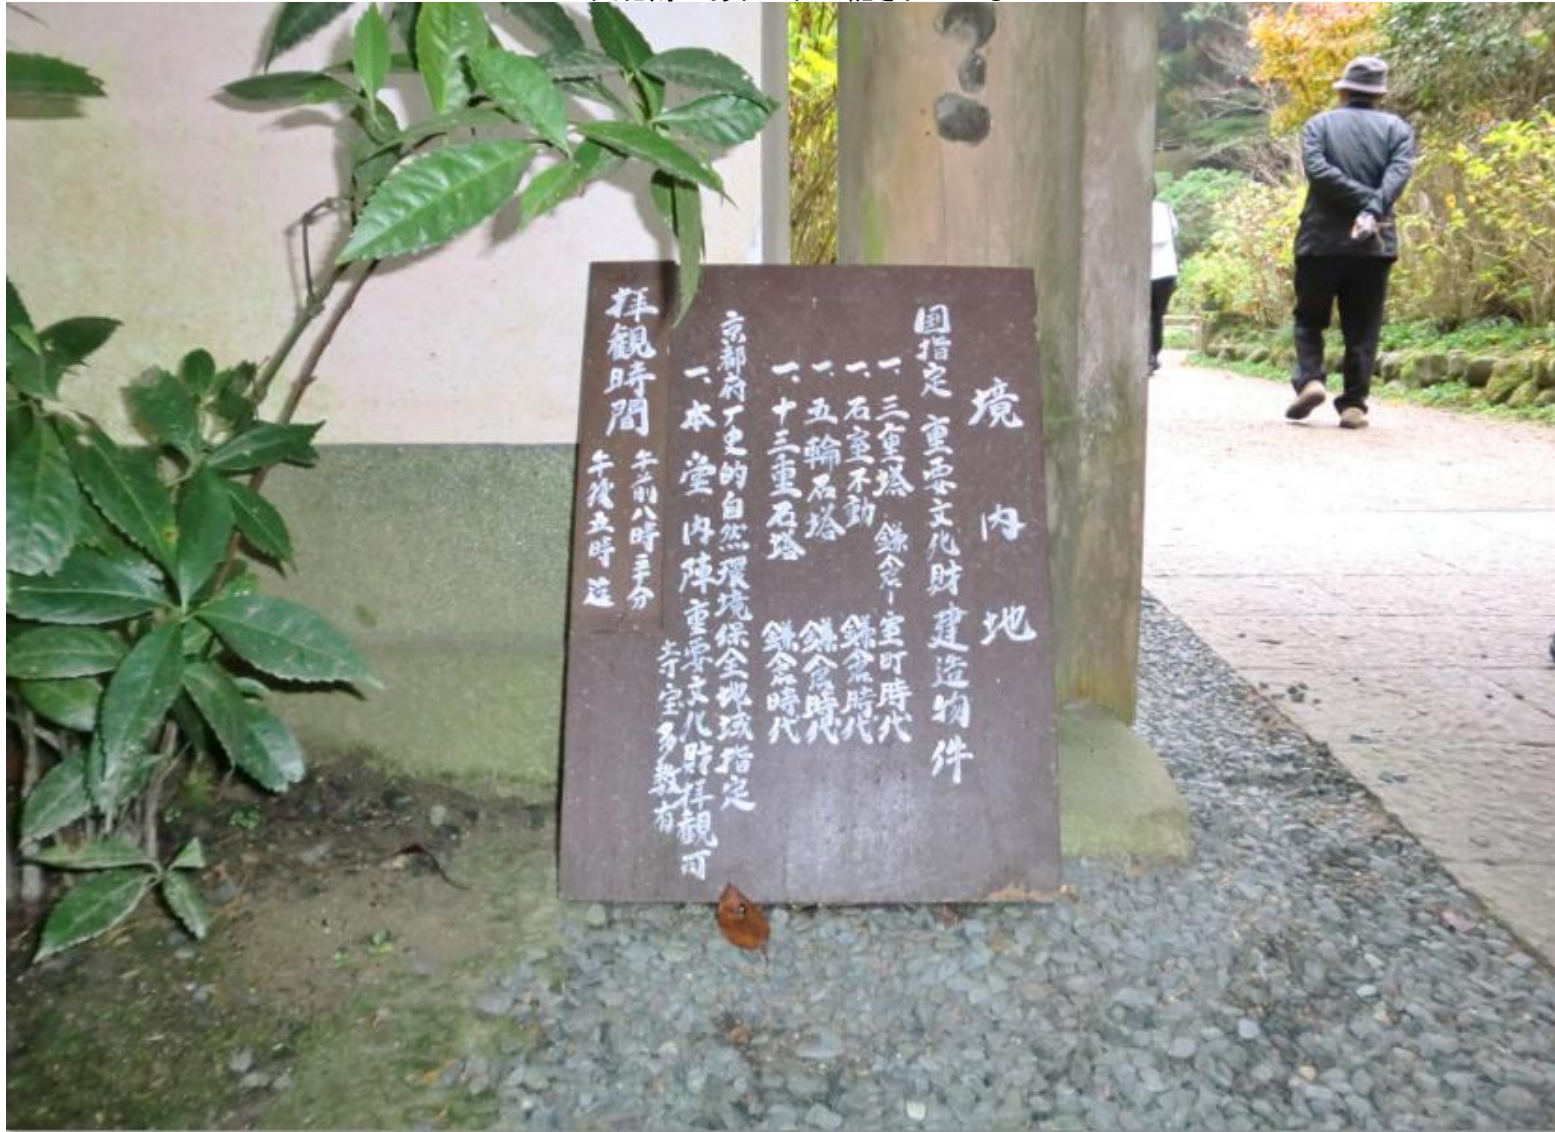 境内地
国指定 重要文化財建造物件
一、三重塔 鎌倉ー室町時代
一、石室不動 鎌倉時代
一、五輪石塔 鎌倉時代
一、十三重石塔 鎌倉時代
京都府歴史的自然環境保全地域指定
一、本堂内陣重要文化財拝観可
寺宝多数有
拝観時間
午前八時三十分
午後五時迄